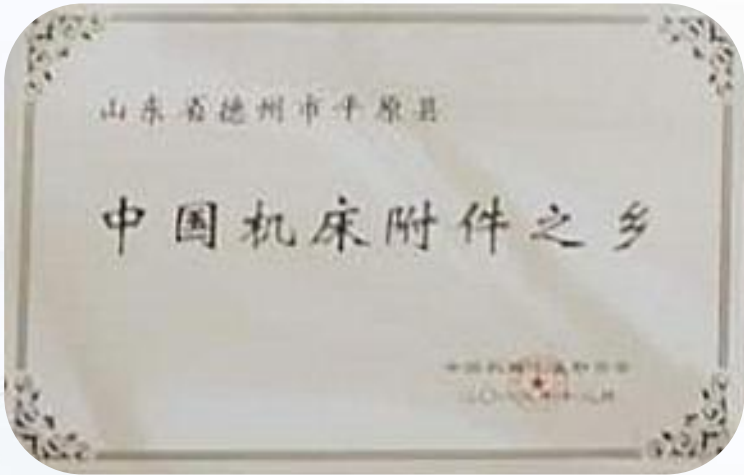 山东省德州市平原县
中国机床附件之乡